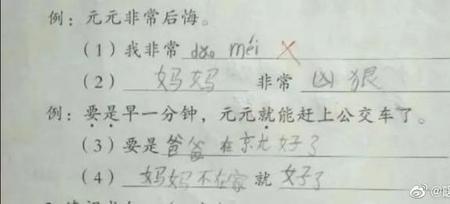 例：元元非常后悔。
（1）我非常 dǎo méi
（2）妈妈 非常 凶狠
例：要是早一分钟，元元就能赶上公交车了。
（3）要是爸爸在京尤好了
（4）妈妈不在家就好了